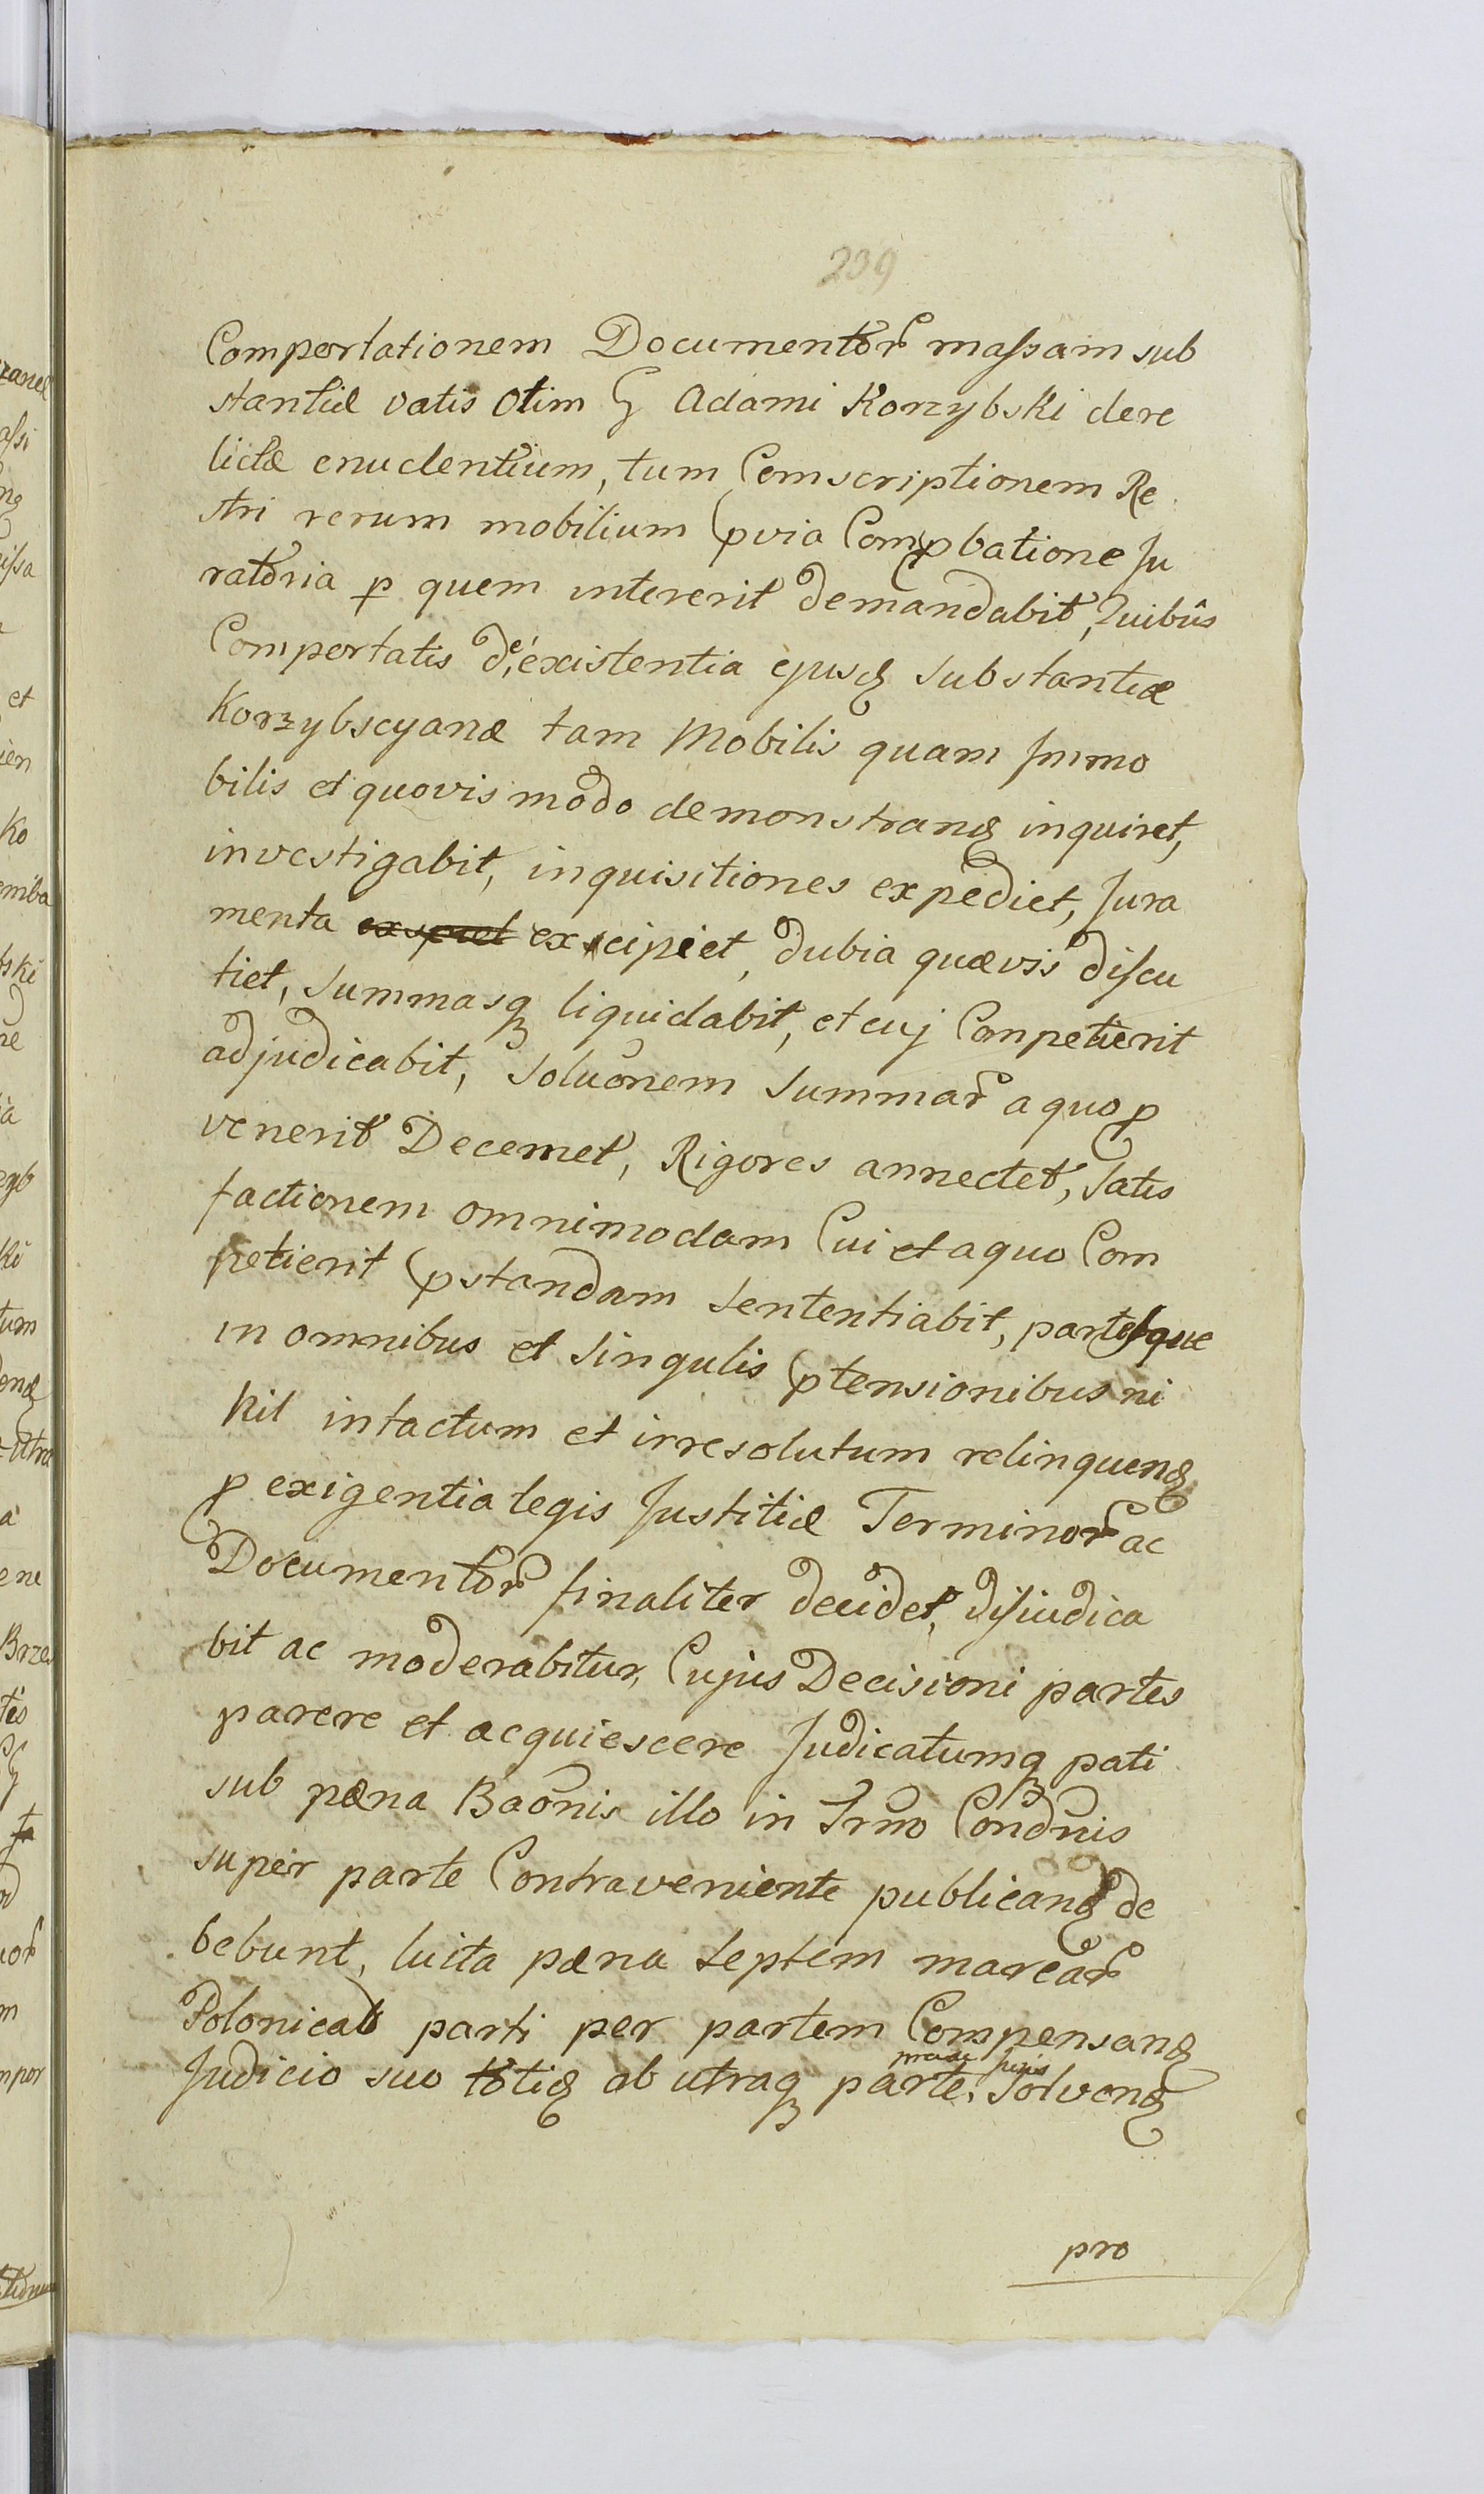 239
Comportationem Documentor̃ massam sub
stantiæ vatis Olim G Adami Korzybski dere
lictæ enucleantium, tum Comscriptionem Re
stri rerum mobilium pvia Compbatione Ju
ratoria p quem intererit demandabit, Quibus
Comportatis de existentia ejusq substantiæ
Korzybscyanæ tam Mobilis quam Immo
bilis et quovis modo demonstranḍ inquiret,
investigabit, inquisitiones expediet, Jura
menta excipiet, dubia quævis discu
tiet, summasq liquidabit, et cuj Competierit
adjudicabit, Soluõnem Summar̃ a quo p
venerit Decernet, Rigores annectet, Satis
factionem omnimodam Cui et a quo Com
petierit pstandam sententiabit, partesque
in omnibus et singulis ptensionibus ni
hil intactum et irresolutum relinquenḍ
p exigentia legis Justitiæ Terminor̃ ac
Documentor̃ finaliter decidet, dijudica
bit ac moderabitur, Cujus Decisioni partes
parere et acquiescere Judicatumq pati
sub pæna Baõnis illo in Trno Condnis
super parte Contraveniente publicanḍ de
bebunt, luita pæna septem marcar̃
Polonical parti per partem Compensanḍ
Judicio suo totiḍ ab utraq parte Solvenḍ
pro